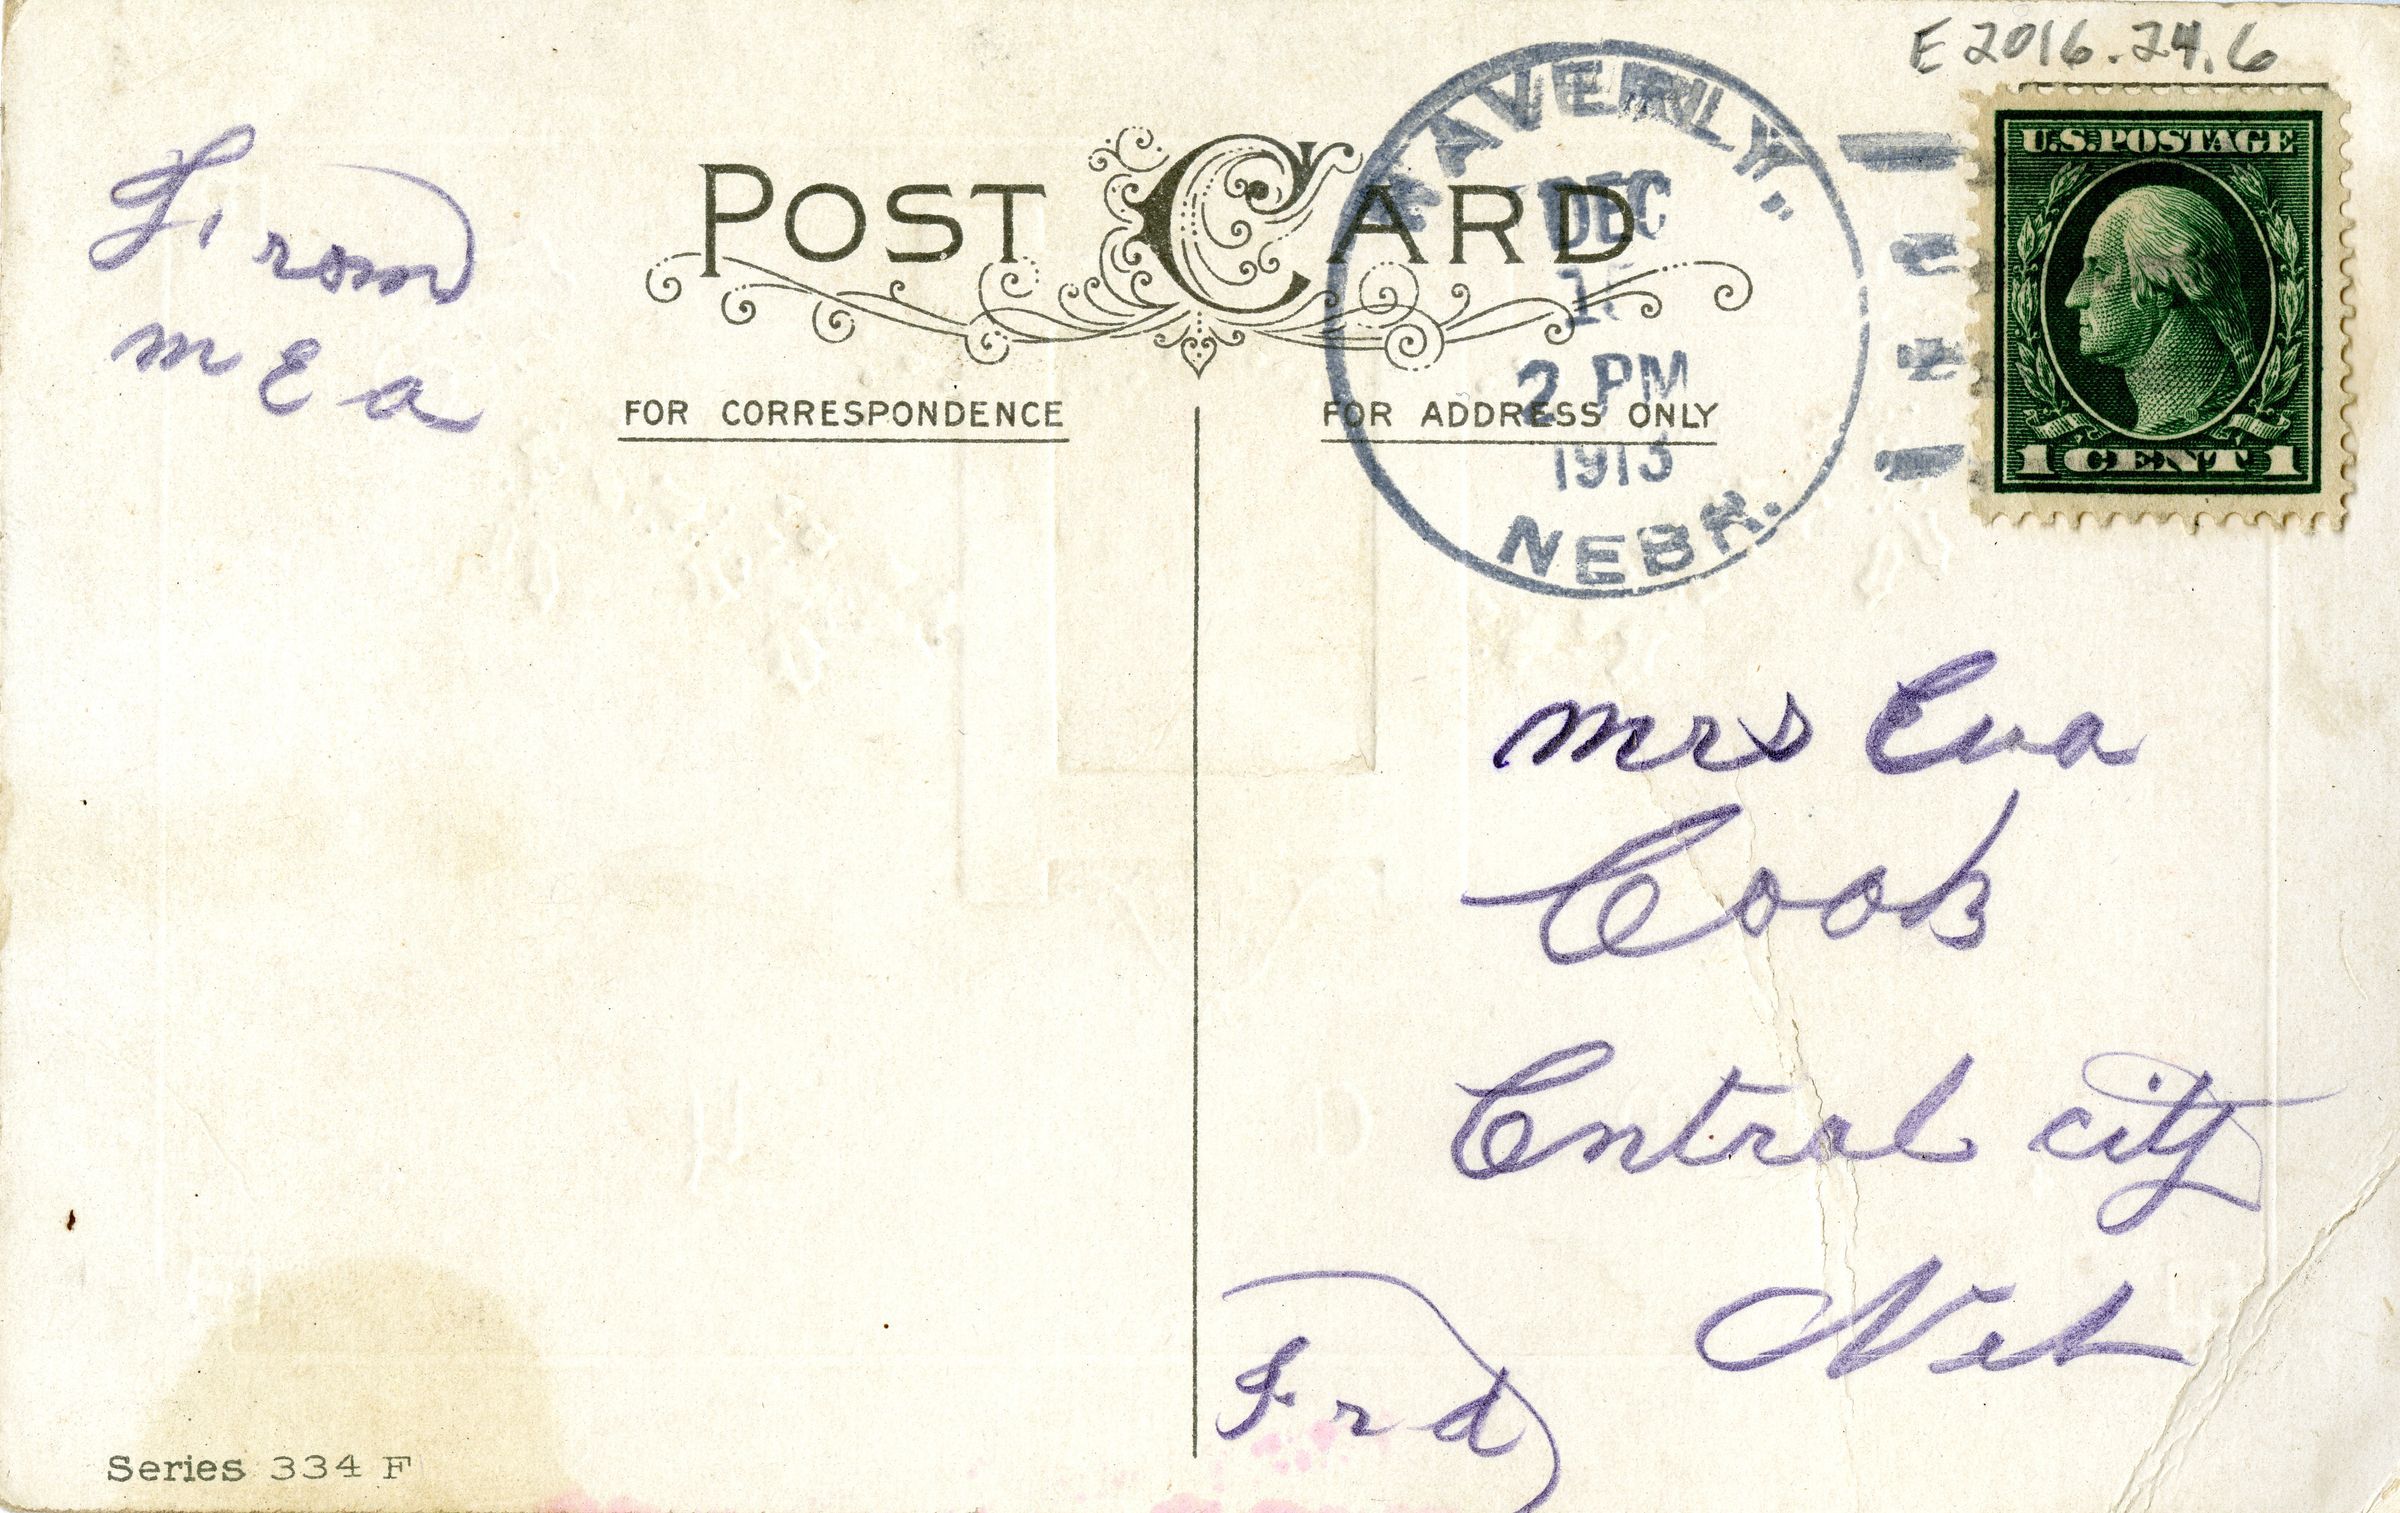 E 2016.24.6
From
m E a
POST CARD
FOR CORRESPONDENCE
FOR ADDRESS ONLY
WAVERLY,
DEC
2 PM
1913
NEBR.
U.S. POSTAGE
1 CENT 1
Mrs Eva
Cook
Central city
Neb
Series 334 F